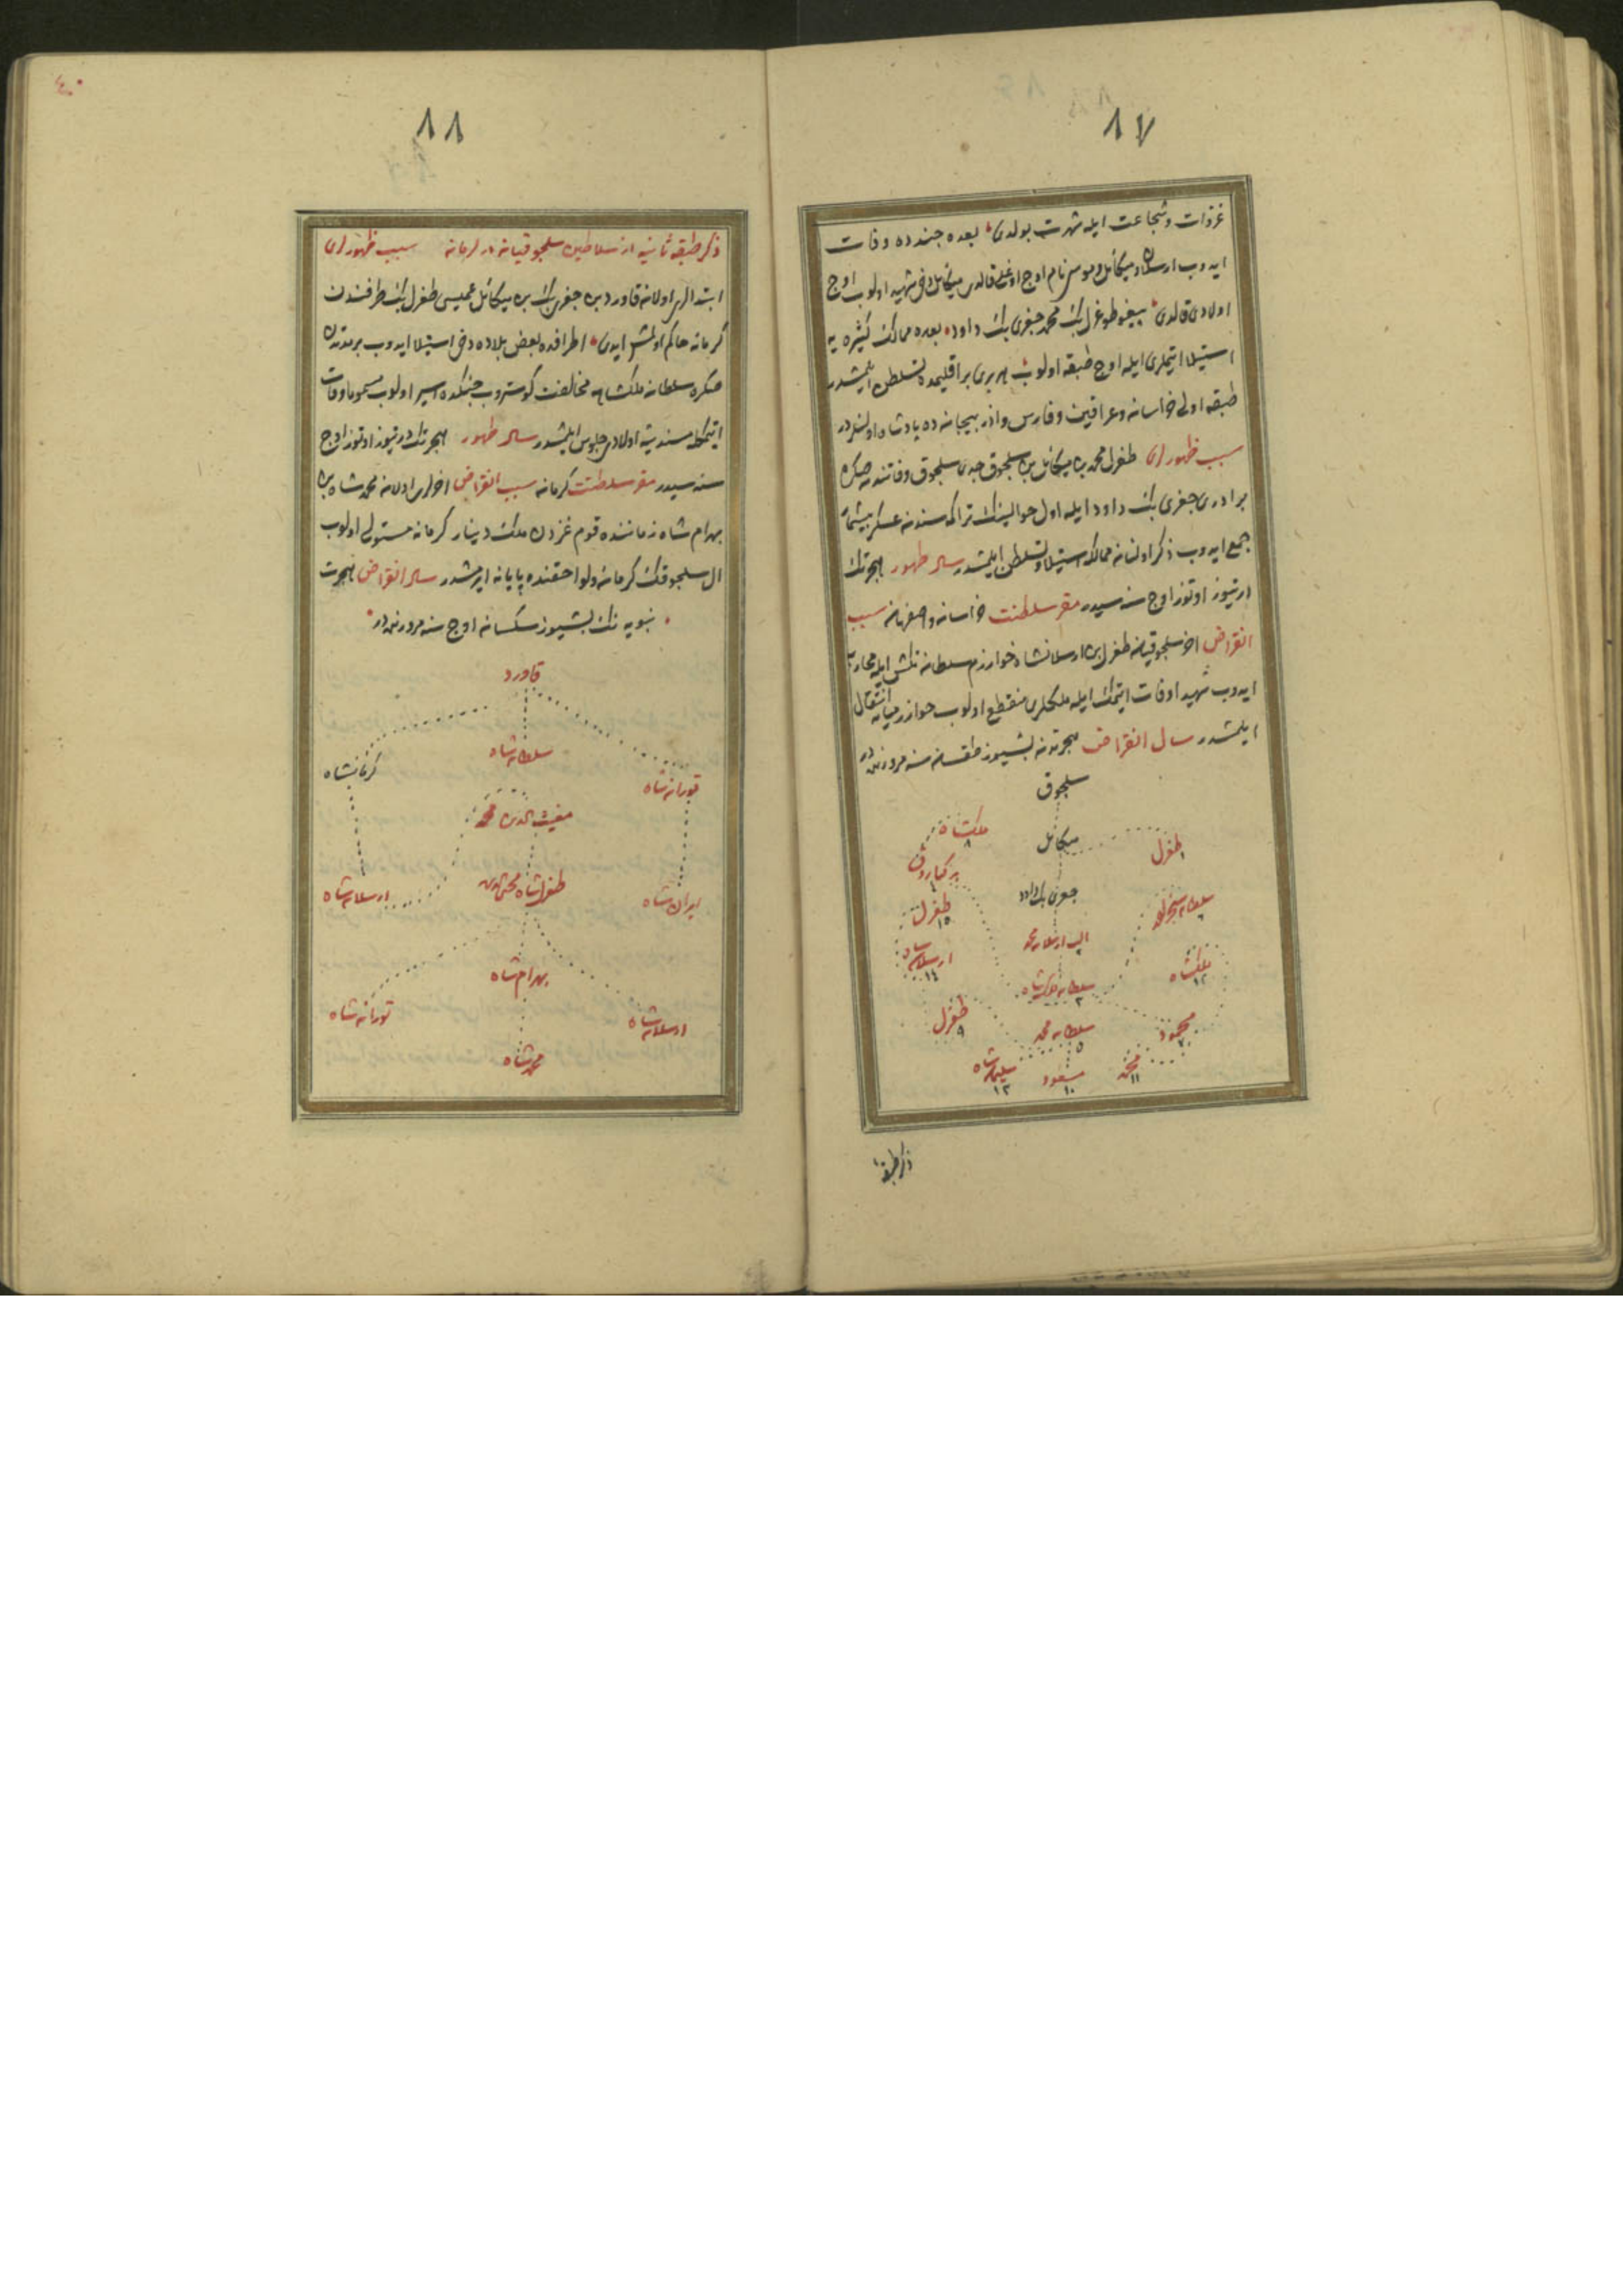 ٨٧
غزوات و شجاعت ایله شهرت بولدی بعده جندده وفات
ایدوب ارسلان و میکائل و موسی نام اوچ اوغلی قالدی میکائل دخی شهید اولوب اوچ
اولادی قالدی بیغو طوغرل بك محمد جغری بك داود بعده ممالك کثیره یه
استیلا ایتملری ایله اوچ طبقه اولوب هر بری بر اقلیمده تسلطن ایلمشدر
طبقه اولی خراسان و عراقین و فارس و اذربیجانده پادشاه اولنلردر
سبب ظهور ای طغرل محمد بن میکائل بن سلجوق جدی سلجوق وفاتندن صکره
برادری جغری بك داود ایله اول حوالینك تراکمه سندن عسکر بیشمار
جمع ایدوب ذکر اولنان ممالکه استیلا و تسلطن ایلمشدر سال ظهور هجرتك
درتیوز اوتوز اوچ سنه سیدر مقر سلطنت خراسان و اصفهان سبب
انقراض اخر سلجوقیان طغرل بن ارسلانشاه خوارزم سلطان تکش ایله محاربه
ایدوب شهیدا وفات ایتمك ایله ملکلری منقطع اولوب خوارزمیانه انتقال
ایلمشدر سال انقراض هجرتدن بشیوز طقسان سنه مرورنده در
سلجوق
میکائل
طغرل ١
ملکشاه ٨
برکیارق
جغری بك داود
سلطان سنجر
طغرل ١٥
الب ارسلان محمد
ارسلان شاه ١٤
ملکشاه ١٢
سلطان ملکشاه ٣
طغرل ٩
سلطان محمد ٥
محمود
سلیمانشاه ١٣
مسعود ١٠
محمد ١١
ذکر طبقه
٤٠
٨٨
ذکر طبقه ثانیه از سلاطین سلجوقیان در کرمان سبب ظهور ای
ابتدالری اولان قاورد بن جغری بك بن میکائل عمیسی طغرل بك طرفندن
کرمانه حاکم اولمش ایدی اطرافده بعض بلاده دخی استیلا ایدوب بر مدتدن
صکره سلطان ملکشاهه مخالفت کوستروب جنکده اسیر اولوب مسموما وفات
ایتمکله مسندینه اولادی جلوس ایلمشدر سال ظهور هجرتك درتیوز اوتوز اوچ
سنه سیدر مقر سلطنت کرمان سبب انقراض اخرلری اولان محمد شاه بن
بهرام شاه زماننده قوم غزدن ملك دینار کرمانه مستولی اولوب
ال سلجوقك کرمان و لواحقنده پایانه ایرمشدر سال انقراض هجرت
نبویه نك بشیوز سکسان اوچ سنه مرورنده در
قاورد
کرمانشاه
سلطان شاه
تورانشاه
مغیث الدین محمد
ارسلان شاه
طغرل شاه محیی الدین
ایران شاه
بهرام شاه
تورانشاه
ارسلان شاه
محمد شاه